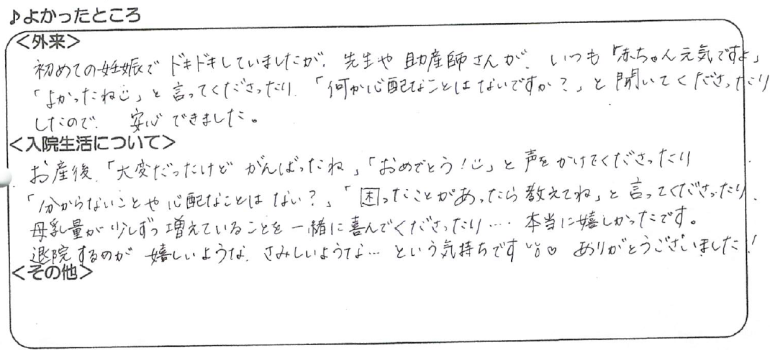 ♪よかったところ
<外来>
初めての妊娠でドキドキしていましたが、先生や助産師さんが、いつも「赤ちゃん元気ですよ」
「よかったね」と言ってくださったり、「何か心配なことはないですか?」と聞いてくださったり
したので、安心できました。
<入院生活について>
お産後、「大変だったけどがんばったね」「おめでとう!」と声をかけてくださったり
「分からないことや心配なことはない?」「困ったことがあったら教えてね」と言ってくださったり、
母乳量が少しずつ増えていることを一緒に喜んでくださったり…本当に嬉しかったです。
退院するのが嬉しいような、さみしいような…という気持ちです♡ ありがとうございました!
<その他>